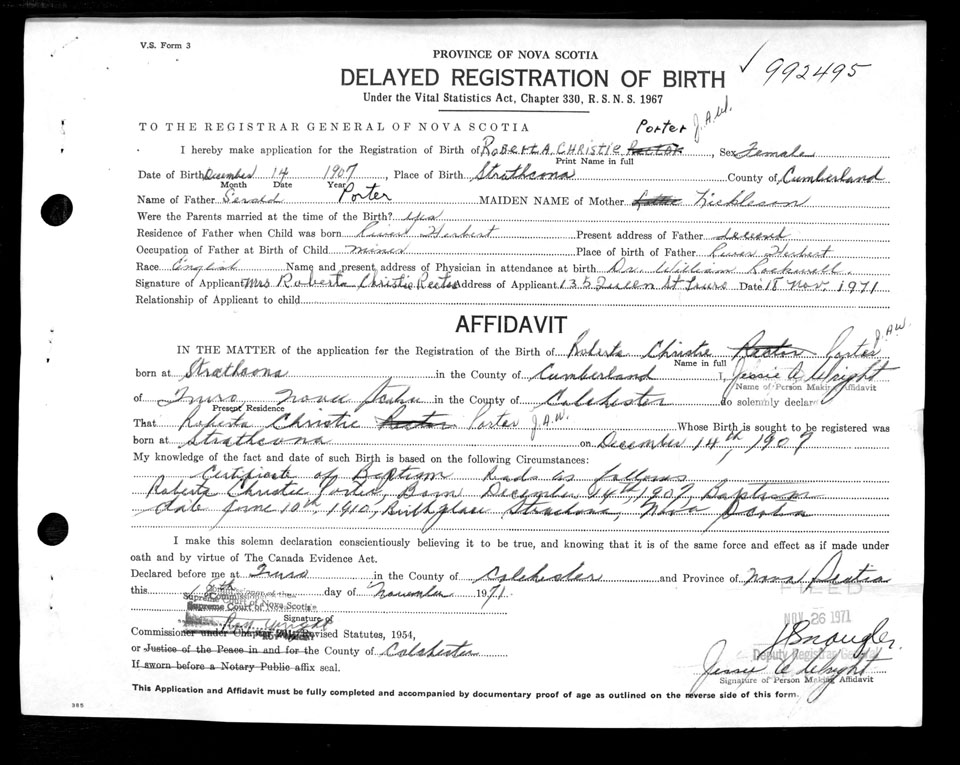 V.S. Form 3
PROVINCE OF NOVA SCOTIA
✓ 992495
DELAYED REGISTRATION OF BIRTH
Under the Vital Statistics Act, Chapter 330, R.S.N.S. 1967
Porter J.A.W.
TO THE REGISTRAR GENERAL OF NOVA SCOTIA
I hereby make application for the Registration of Birth of RobertA CHRISTIE Rector, Sex Female
Print Name in full
Date of Birth December 14 1907, Place of Birth Strathcona County of Cumberland
Month Date Year
Name of Father Gerald Porter MAIDEN NAME of Mother Nickleson
Were the Parents married at the time of the Birth? yes
Residence of Father when Child was born River Herbert Present address of Father deceased
Occupation of Father at Birth of Child miner Place of birth of Father River Herbert
Race English Name and present address of Physician in attendance at birth Dr. William Rockwell.
Signature of Applicant Mrs Roberta Christie Rector Address of Applicant 135 Queen St Truro Date 18 Nov. 1971
Relationship of Applicant to child
AFFIDAVIT
J.A.W.
IN THE MATTER of the application for the Registration of the Birth of Roberta Christie Rector Porter
Name in full
born at Strathcona in the County of Cumberland I, Jessie A Wright
Name of Person Making Affidavit
of Truro Nova Scotia in the County of Colchester do solemnly declare
Present Residence
That Roberta Christie Rector Porter J.A.W. Whose Birth is sought to be registered was
born at Strathcona on December 14th, 1907
My knowledge of the fact and date of such Birth is based on the following Circumstances:
Certificate of Baptism Reads as follows
Roberta Christie Porter, Born December 14th, 1907, Baptism
date June 10th, 1910, Birthplace Strathcona, Nova Scotia
I make this solemn declaration conscientiously believing it to be true, and knowing that it is of the same force and effect as if made under
oath and by virtue of The Canada Evidence Act.
Declared before me at Truro in the County of Colchester and Province of Nova Scotia
this 18th day of November 1971.
FILED
NOV 26 1971
Supreme Court of Nova Scotia
Roy Wright
Signature of
Commissioner under Chapter Revised Statutes, 1954,
or Justice of the Peace in and for the County of Colchester
Deputy Registrar General
If sworn before a Notary Public affix seal.
Jessie A Wright
Signature of Person Making Affidavit
This Application and Affidavit must be fully completed and accompanied by documentary proof of age as outlined on the reverse side of this form.
385